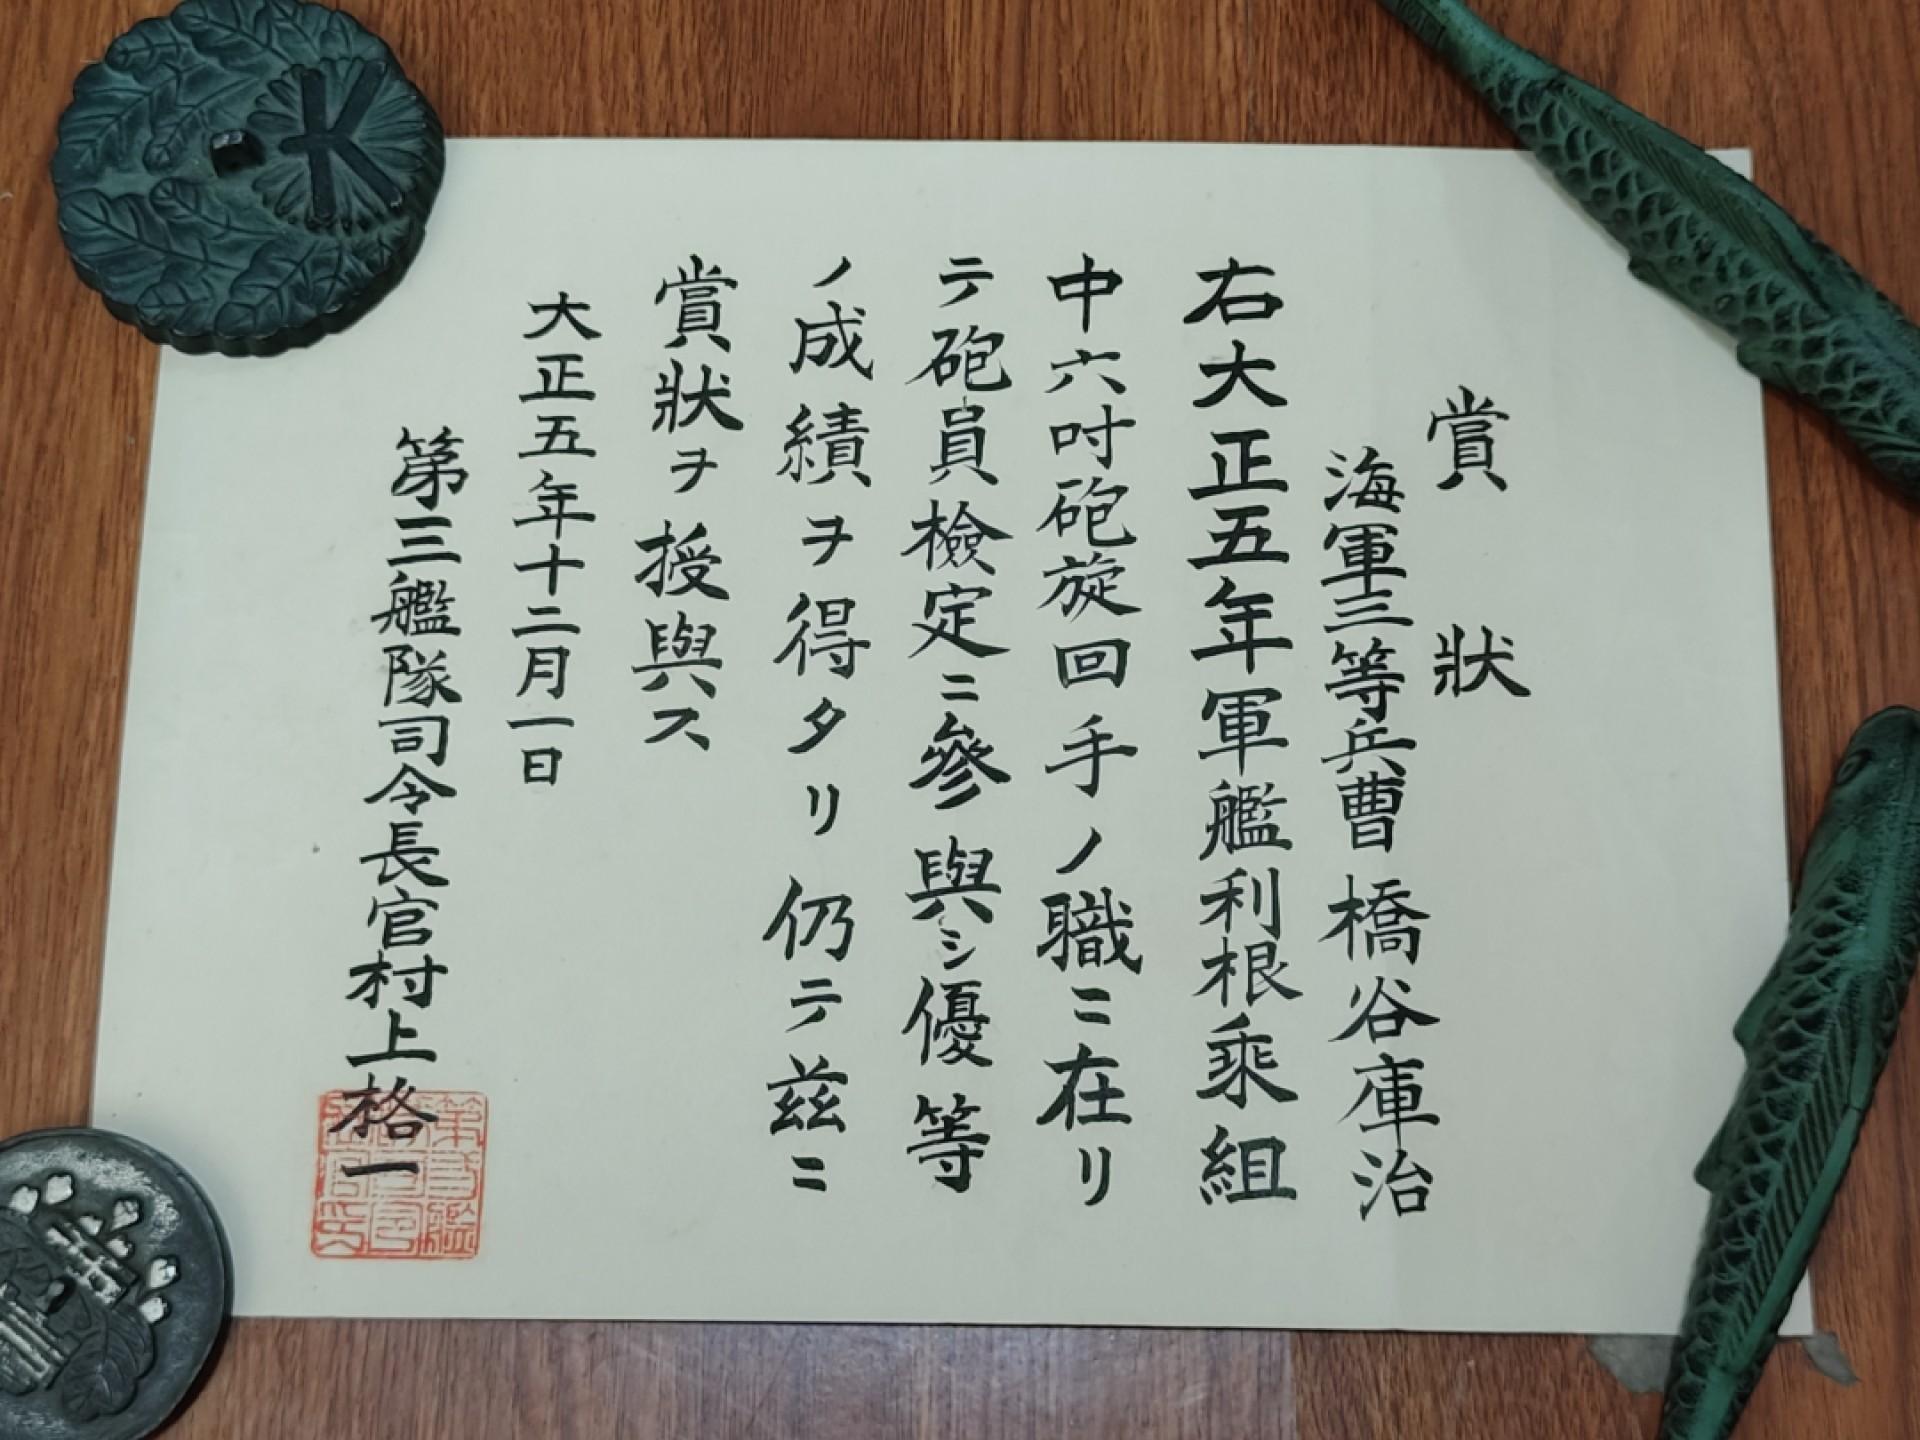 賞狀
海軍三等兵曹 橋谷庫治
右大正五年軍艦利根乘組
中六吋砲旋回手ノ職ニ在リ
テ砲員檢定ニ參與シ優等
ノ成績ヲ得タリ仍テ茲ニ
賞狀ヲ授與ス
大正五年十二月一日
第三艦隊司令長官村上格一